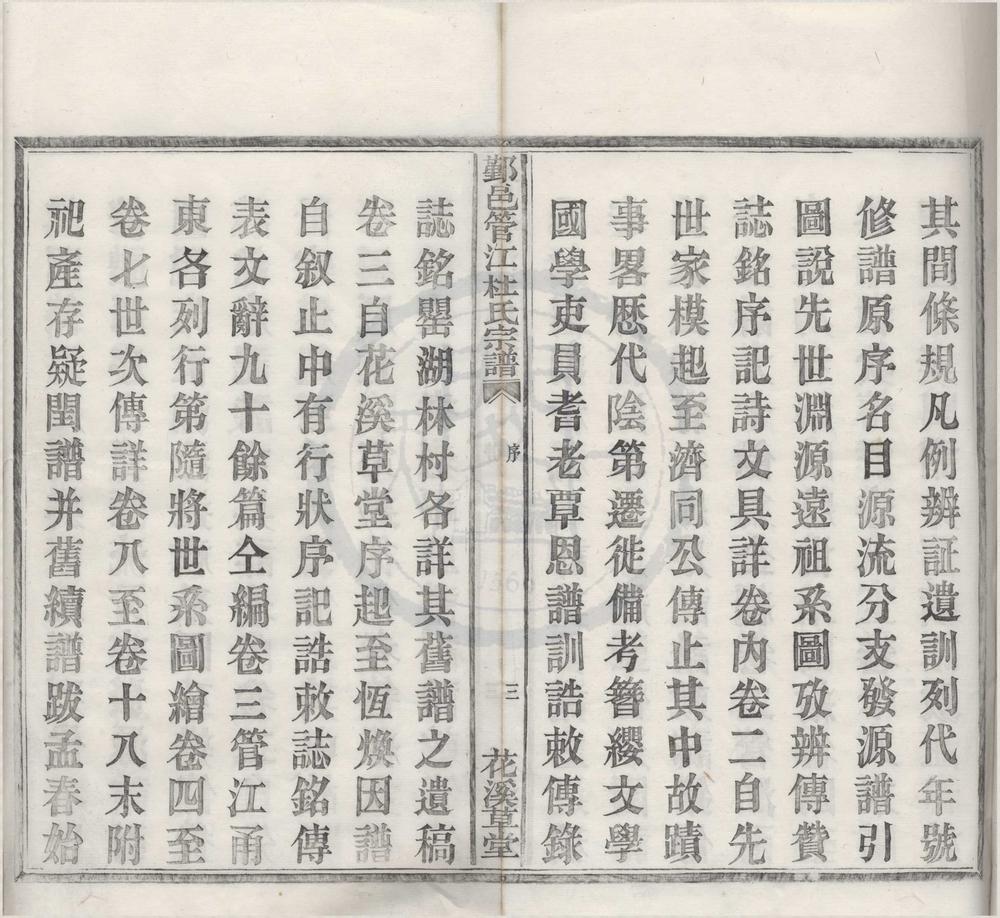 其間條規凡例辨証遺訓列代年號
修譜原序名目源流分支發源譜引
圖說先世淵源遠祖系圖攷辨傳贊
誌銘序記詩文具詳卷內卷二自先
世家模起至濟同公傳止其中故蹟
事畧歷代陰第遷徙備考簪纓文學
國學吏員耆老覃恩譜訓誥敕傳錄
鄞邑管江杜氏宗譜 序 三 花溪草堂
誌銘罌湖林村各詳其舊譜之遺稿
卷三自花溪草堂序起至恆煥因譜
自叙止中有行狀序記誥敕誌銘傳
表文辭九十餘篇仝編卷三管江甬
東各列行第隨將世系圖繪卷四至
卷七世次傳詳卷八至卷十八末附
祀產存疑閏譜并舊續譜跋孟春始
1566